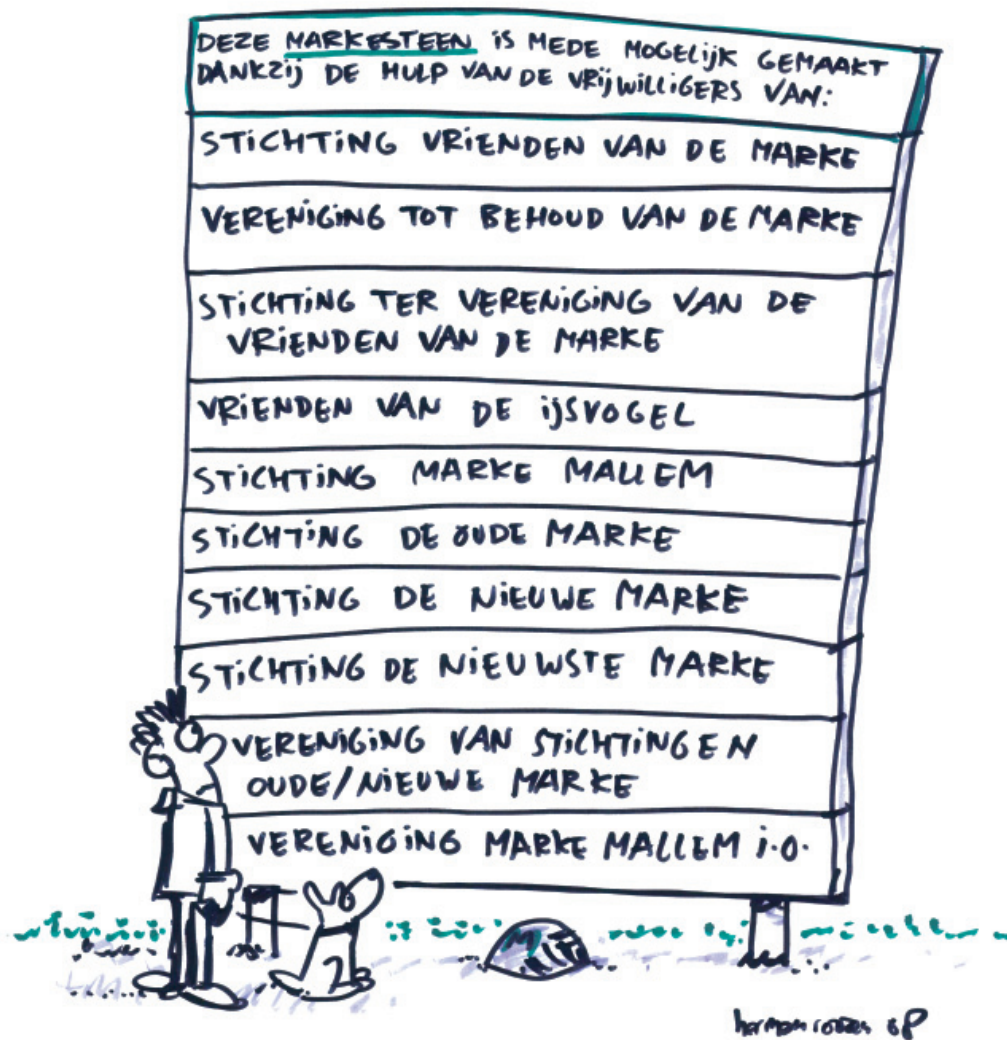 DEZE MARKESTEEN iS MEDE MOGELijK GEMAAKT
DANKZij DE HULP VAN DE VRijWiLLiGERS VAN:
STiCHTiNG VRiENDEN VAN DE MARKE
VERENiGiNG TOT BEHOUD VAN DE MARKE
STiCHTiNG TER VERENiGiNG VAN DE
VRiENDEN VAN DE MARKE
VRiENDEN VAN DE ijSVOGEL
STiCHTiNG MARKE MALLEM
STiCHTiNG DE OUDE MARKE
STiCHTiNG DE NiEUWE MARKE
STiCHTiNG DE NiEUWSTE MARKE
VERENiGiNG VAN STiCHTiNGEN
OUDE/NiEUWE MARKE
VERENiGiNG MARKE MALLEM i.O.
herman